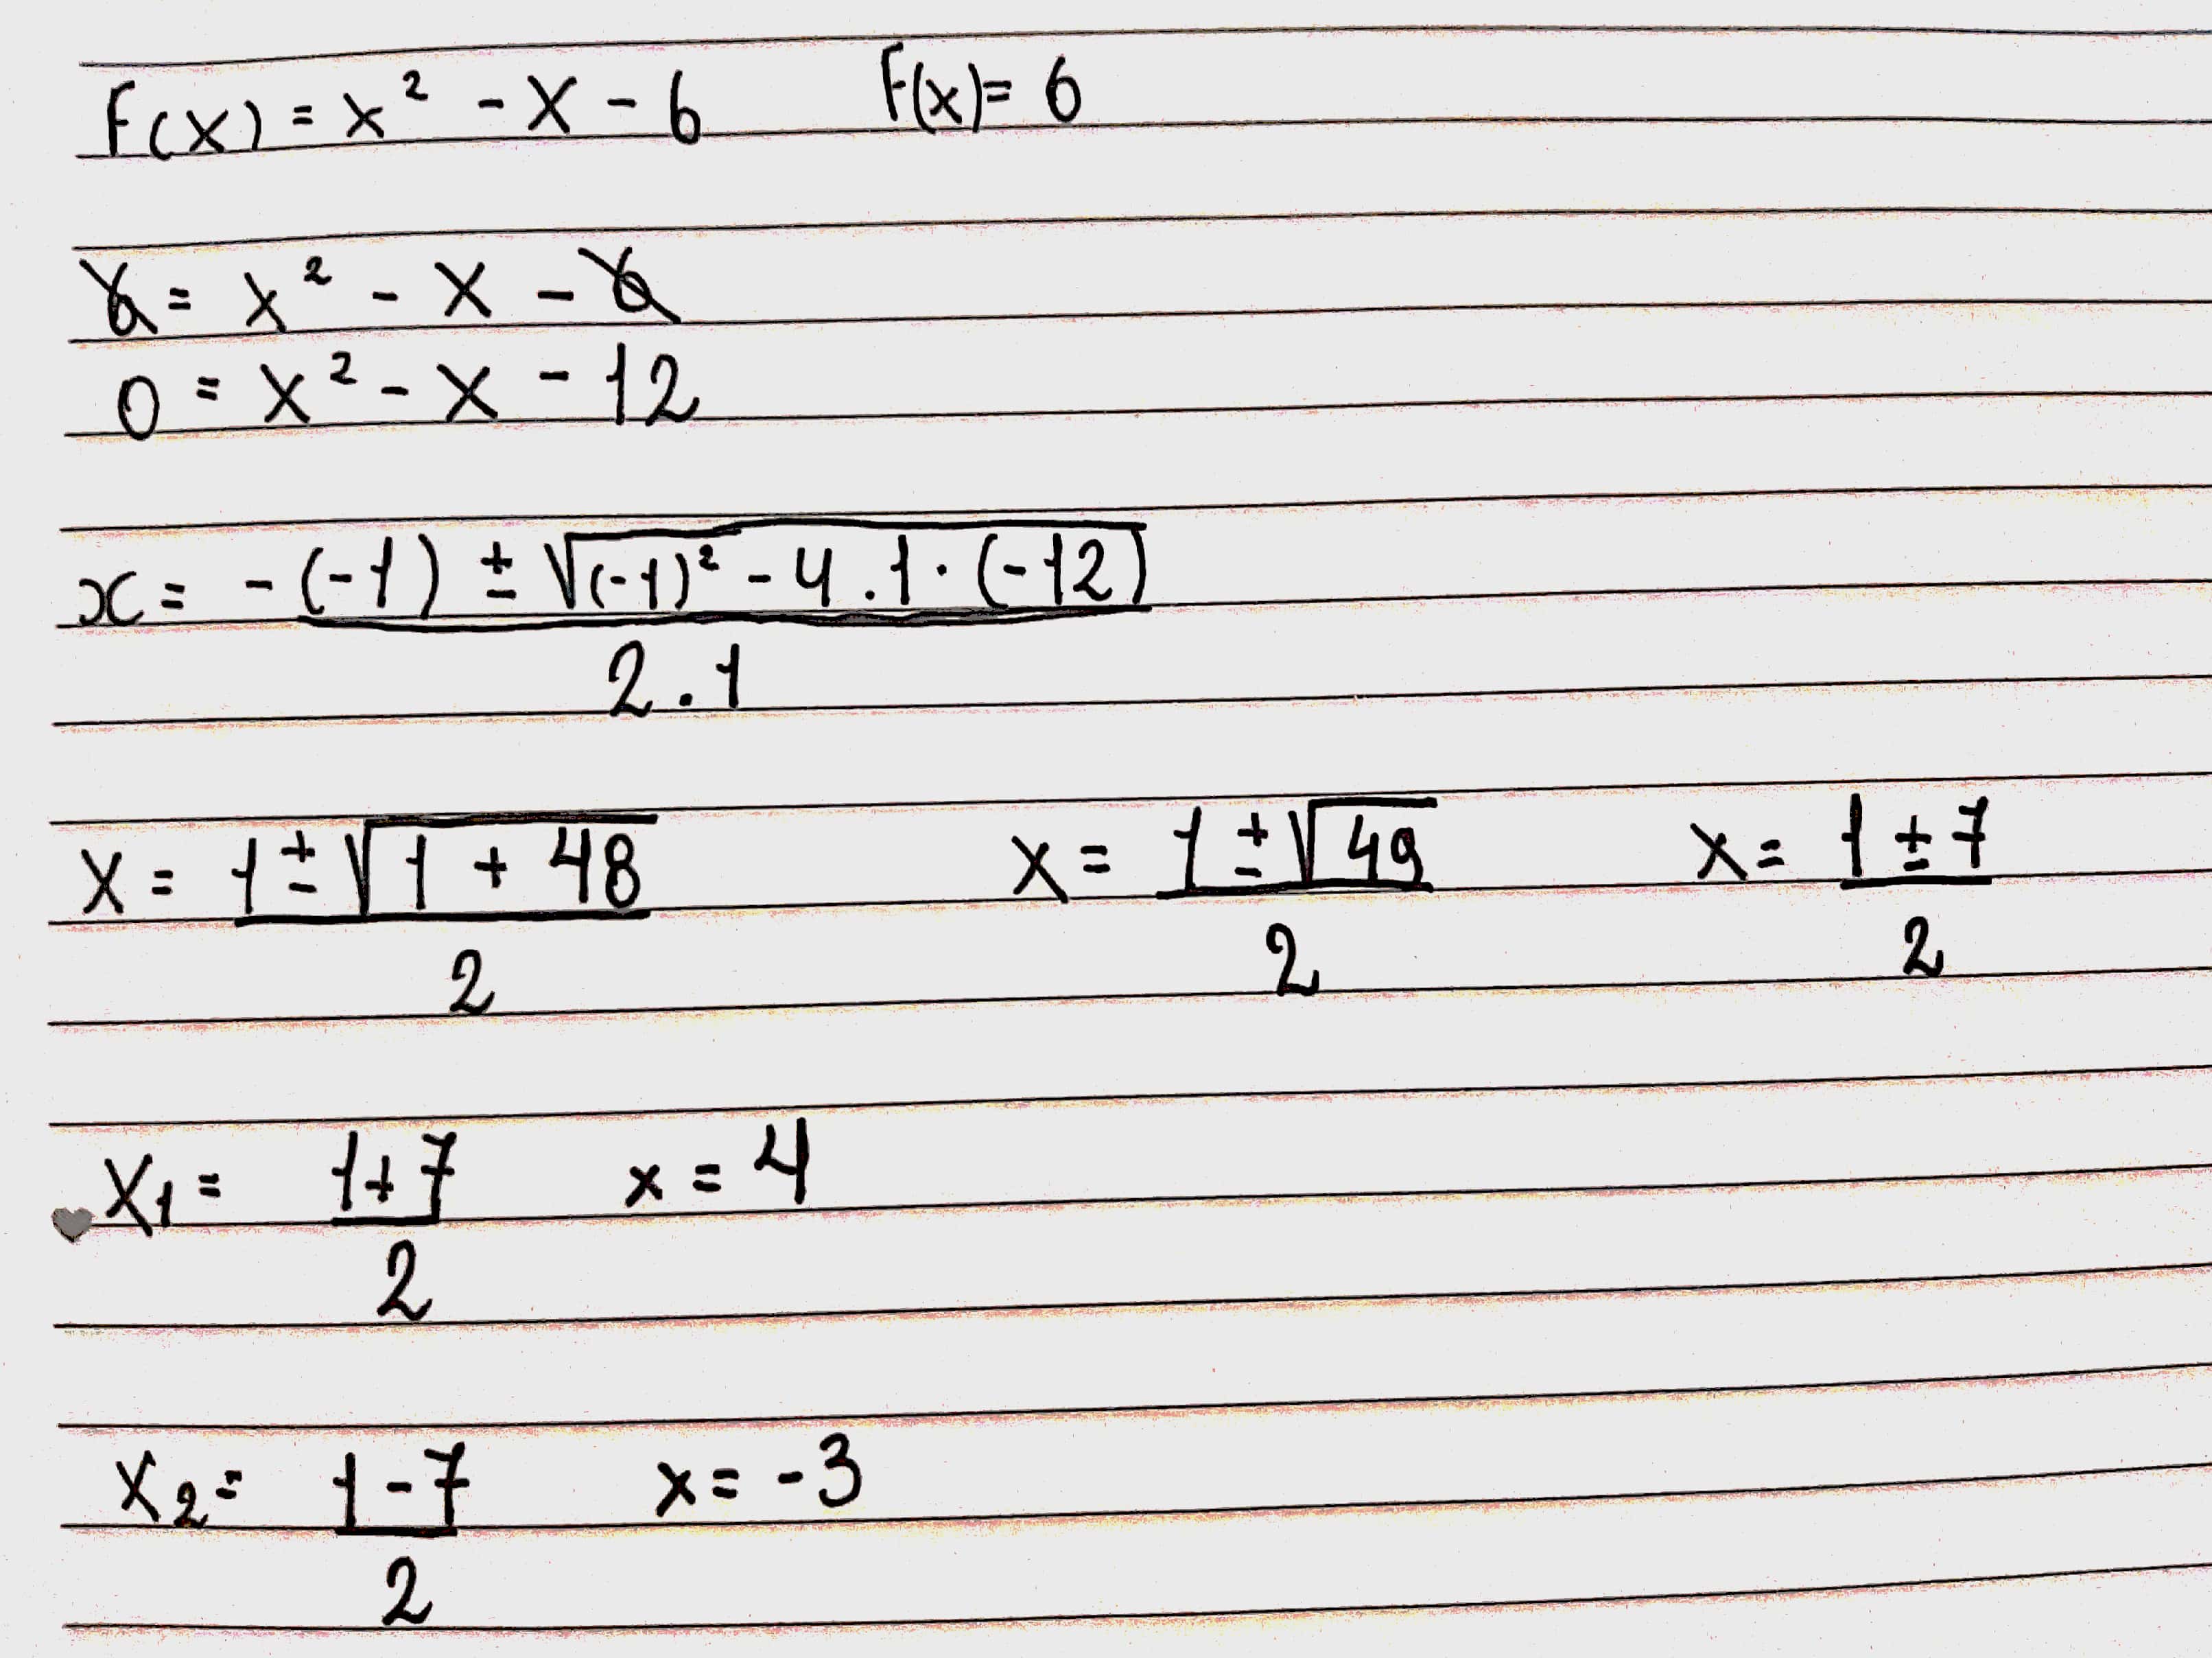 F(x) = x² - x - 6 F(x) = 6
6 = x² - x - 6
0 = x² - x - 12
x = -(-1) ± √(-1)² - 4 . 1 · (-12)
2 . 1
x = 1 ± √1 + 48 x = 1 ± √49 x = 1 ± 7
2 2 2
x₁ = 1+7 x = 4
2
x₂ = 1-7 x = -3
2